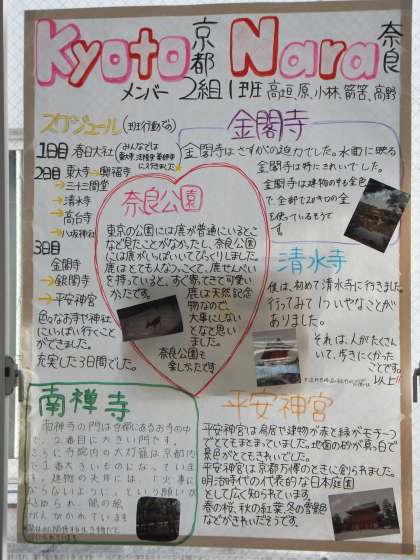 Kyoto 京都 Nara 奈良
メンバー 2組1班 高垣、原、小林、箭筈、高野
スケジュール(班行動での)
1日目 春日大社
(みんなでは
に行きました)
2日目 東大寺→興福寺
→三十三間堂
→清水寺
→高台寺
→八坂神社
3日目
金閣寺
→銀閣寺
→平安神宮
色々なお寺や神社
にいっぱい行くこと
ができました。
充実した3日間でした。
金閣寺
金閣寺はさすがの迫力でした。水面に映る
金閣寺は特にきれいでした。
金閣寺は建物の中も金色
で、全部で20キロの金
を使っているそうで
す。
奈良公園
東京の公園には鹿が普通にいるとこ
など見たことがなかったし、奈良公園
には鹿がいっぱいいてびっくりしました。
鹿はとても人なつっこくて、鹿せんべい
を持っていると、すぐ寄ってきて可愛い
かたです。
鹿は天然記念
物なので、
大事にしない
となと思い
ました。
奈良公園も
楽しかったです
清水寺
僕は、初めて清水寺に行きました。
行ってみて1ついやなことが
ありました。
それは、人がたくさん
いて、歩きにくかった
ことです。
以上!!
南禅寺
南禅寺の門は京都にあるお寺の中
で、2番目に大きい門です。
さらに寺院内の大灯籠は京都内
で1番大きいものになっていま
す。建物の天井には、「火事に
ならないように」という願いが
込められ、龍の絵
がえがかれています
平安神宮
平安神宮は鳥居や建物が赤と緑がモチーフ
でとてもまとまっていました。地面の砂が真っ白で
景色がとてもきれいでした。
平安神宮は京都万博のときに創られました。
明治時代の代表的な日本庭園
として広く知られています
春の桜、秋の紅葉、冬の雪景色
などがきれいだそうです。